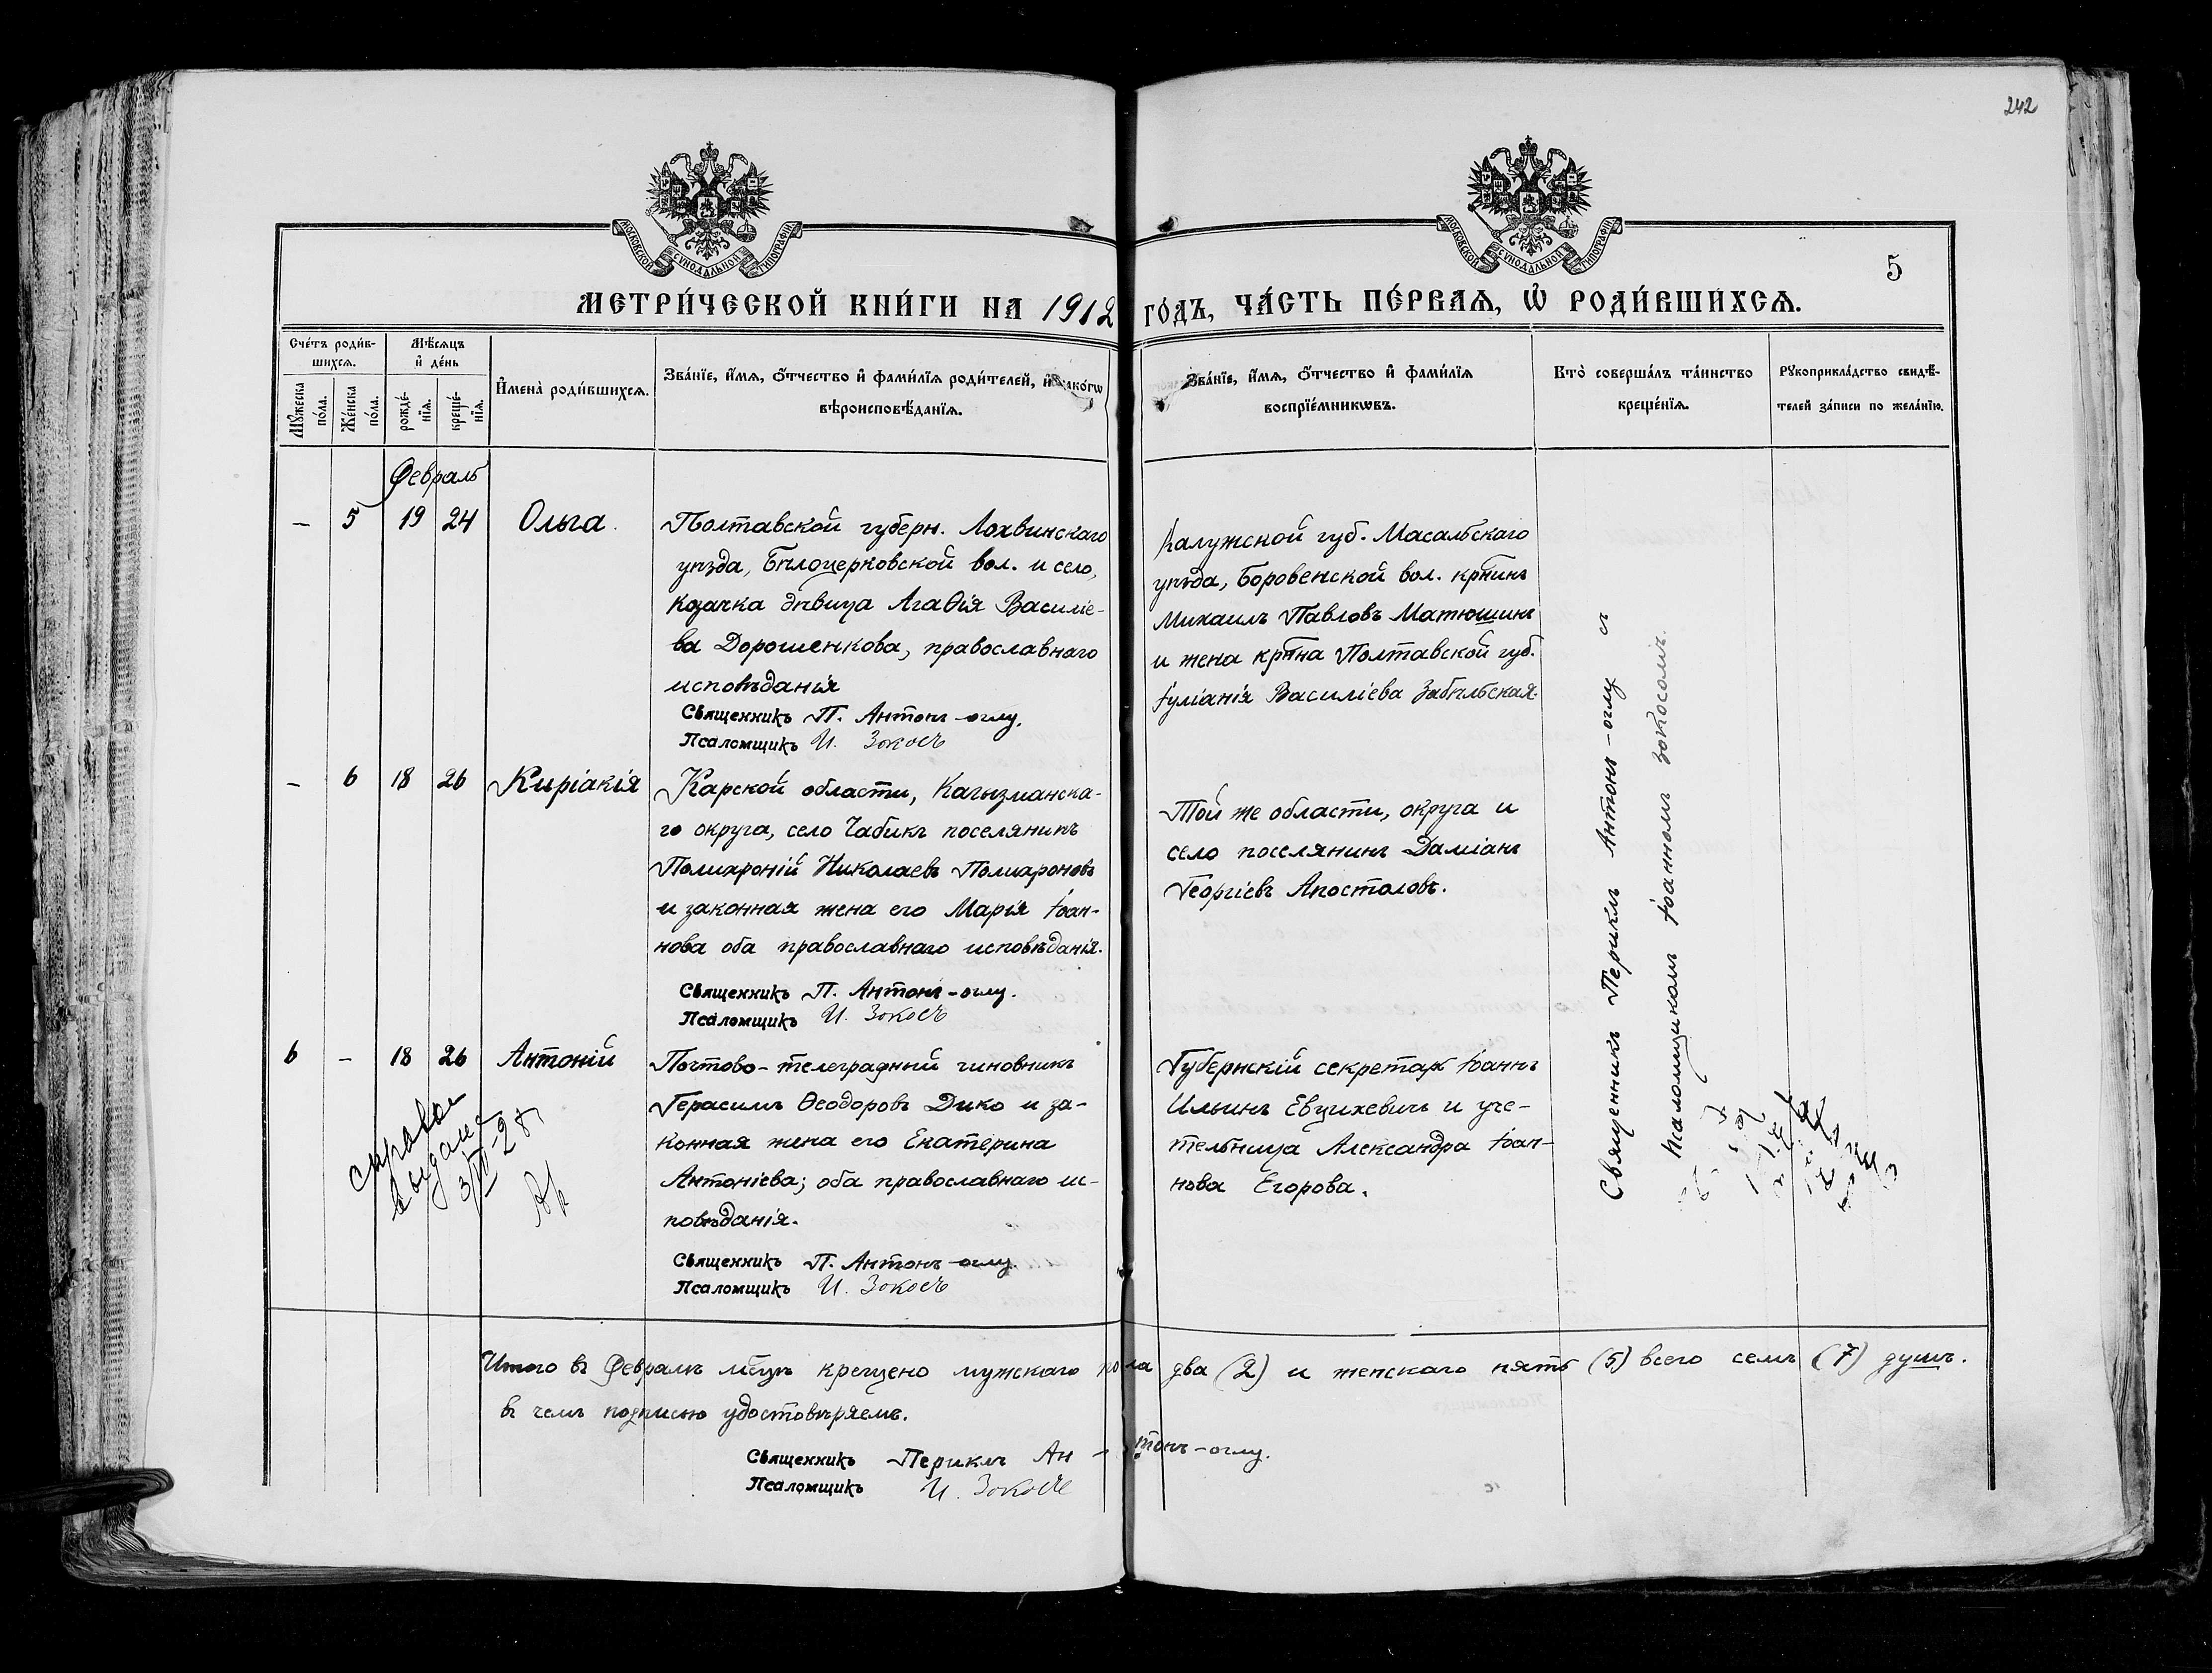 242
МОСКОВСКОЙ СѴНОДАЛЬНОЙ ТИПОГРАФІИ
МОСКОВСКОЙ СѴНОДАЛЬНОЙ ТИПОГРАФІИ
5
МЕТРИ́ЧЕСКОЙ КНИ́ГИ НА 1912 ГО́ДЪ, ЧА́СТЬ ПЕ́РВАЯ, Ѡ҆ РОДИ́ВШИХСЯ.
Сче́тъ роди́в-
шихся.
Мѣ́сяцъ
и҆ де́нь
Мꙋ́жеска по́ла.
Же́нска по́ла.
рожде́-нїя.
креще́-нїя.
И҆мена̀ роди́вшихся.
Зва́нїе, и҆́мя, ѻ҆́тчество и҆ фами́лїя роди́телей, и҆ како́гѡ
вѣроисповѣ́данїя.
Зва́нїе, и҆́мя, ѻ҆́тчество и҆ фами́лїя
воспрїе́мникѡвъ.
Кто̀ соверша́лъ та́инство
креще́нїя.
Рꙋкоприкла́дство свидѣ́-
телей за́писи по жела́нїю.
Февраль
— 5 19 24 Ольга.
Полтавской губерн. Лохвинскаго
уѣзда, Бѣлоцерковской вол. и село,
козачка дѣвица Агаѳія Василіе-
ва Дорошенкова, православнаго
исповѣданія
Священникъ П. Антонъ-оглу.
Псаломщикъ И. Зокосъ
Калужской губ. Масальскаго
уѣзда, Боровенской вол. кр҃нинъ
Михаилъ Павловъ Матюшинъ
и жена кр҃нна Полтавской губ.
Іуліанія Василіева Забѣльская.
— 6 18 26 Киріакія
Карской области, Кагызманска-
го округа, село Чабикъ поселянинъ
Полихроній Николаевъ Полихроновъ
и законная жена его Марія Іоан-
нова оба православнаго исповѣданія.
Священникъ П. Антонъ-оглу.
Псаломщикъ И. Зокосъ
Той же области, округа и
село поселянинъ Даміанъ
Георгіевъ Апостоловъ.
6 — 18 26 Антоній
Почтово-телеграфный чиновникъ
Герасимъ Ѳеодоровъ Дико и за-
конная жена его Екатерина
Антоніева; оба православнаго ис-
повѣданія.
Священникъ П. Антонъ-оглу.
Псаломщикъ И. Зокосъ
Губернскій секретарь Іоаннъ
Ильинъ Евцихевичъ и учи-
тельница Александра Іоан-
нова Егорова.
выдана
Священникъ Периклъ Антонъ-оглу съ
псаломщикомъ Іоанномъ Зокосомъ.
Итого въ Февралѣ м҃цѣ крещено мужскаго пола два (2) и женскаго пять (5) всего семь (7) душъ.
въ чемъ подписью удостовѣряемъ.
Священникъ Периклъ Ан-тонъ-оглу.
Псаломщикъ И. Зокосъ